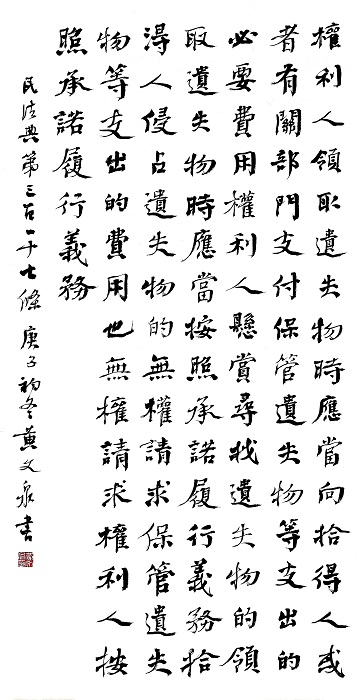 權利人領取遺失物時應當向拾得人或
者有關部門支付保管遺失物等支出的
必要費用權利人懸賞尋找遺失物的領
取遺失物時應當按照承諾履行義務拾
得人侵占遺失物的無權請求保管遺失
物等支出的費用也無權請求權利人按
照承諾履行義務
民法典第三百一十七條 庚子初冬黃文泉書